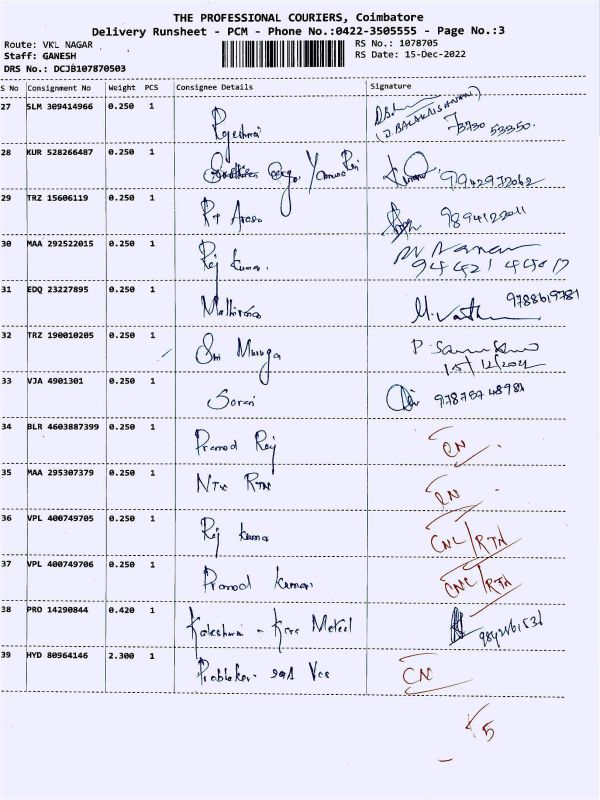 THE PROFESSIONAL COURIERS, Coimbatore
Delivery Runsheet - PCM - Phone No.:0422-3505555 - Page No.:3
Route: VKL NAGAR RS No.: 1078705
Staff: GANESH RS Date: 15-Dec-2022
DRS No.: DCJB107870503
S No Consignment No Weight PCS Consignee Details Signature
27 SLM 309414966 0.250 1 Rajeshwari
(D. BALAKRISHNAN)
73730 53350.
28 KUR 528266487 0.250 1 Yamuna
29 TRZ 15606119 0.250 1 RT Arasu
30 MAA 292522015 0.250 1 Raj Kumar.
31 EDQ 23227895 0.250 1 9788619781
32 TRZ 190010205 0.250 1 Sri Muruga
15/12/2022
33 VJA 4901301 0.250 1 9787548981
34 BLR 4603887399 0.250 1 Pramod Raj CN
35 MAA 295307379 0.250 1 RTN CN
36 VPL 400749705 0.250 1 Raj Kumar CNL/RTN
37 VPL 400749706 0.250 1 Pramod Kumar CNL/RTN
38 PRO 14290844 0.420 1 Metal
39 HYD 80964146 2.300 1 Prabhakar CN
5